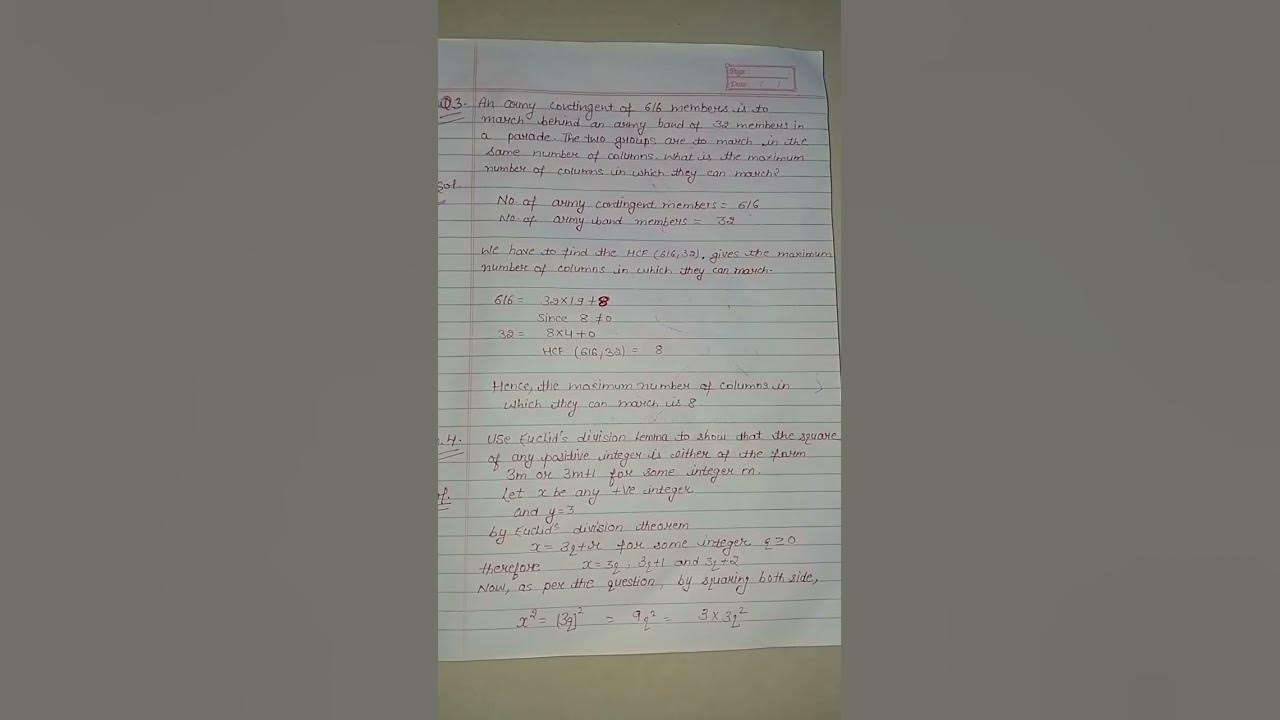 Page:
Date: / /
Q3. An army contingent of 616 members is to
march behind an army band of 32 members in
a parade. The two groups are to march in the
same number of columns. What is the maximum
number of columns in which they can march?
Sol.
No. of army contingent members = 616
No. of army band members = 32
We have to find the HCF (616,32), gives the maximum
number of columns in which they can march.
616 = 32×19+8
Since 8 ≠0
32 = 8×4+0
HCF (616,32) = 8
Hence, the maximum number of columns in
which they can march is 8.
.4. Use Euclid's division lemma to show that the square
of any positive integer is either of the form
3m or 3m+1 for some integer m.
Let x be any +ve integer
and y=3
by Euclid's division theorem
x = 3q+r for some integer q ≥ 0
therefore x = 3q, 3q+1 and 3q+2
Now, as per the question, by squaring both side,
x² = [3q]² = 9q² = 3 × 3q²